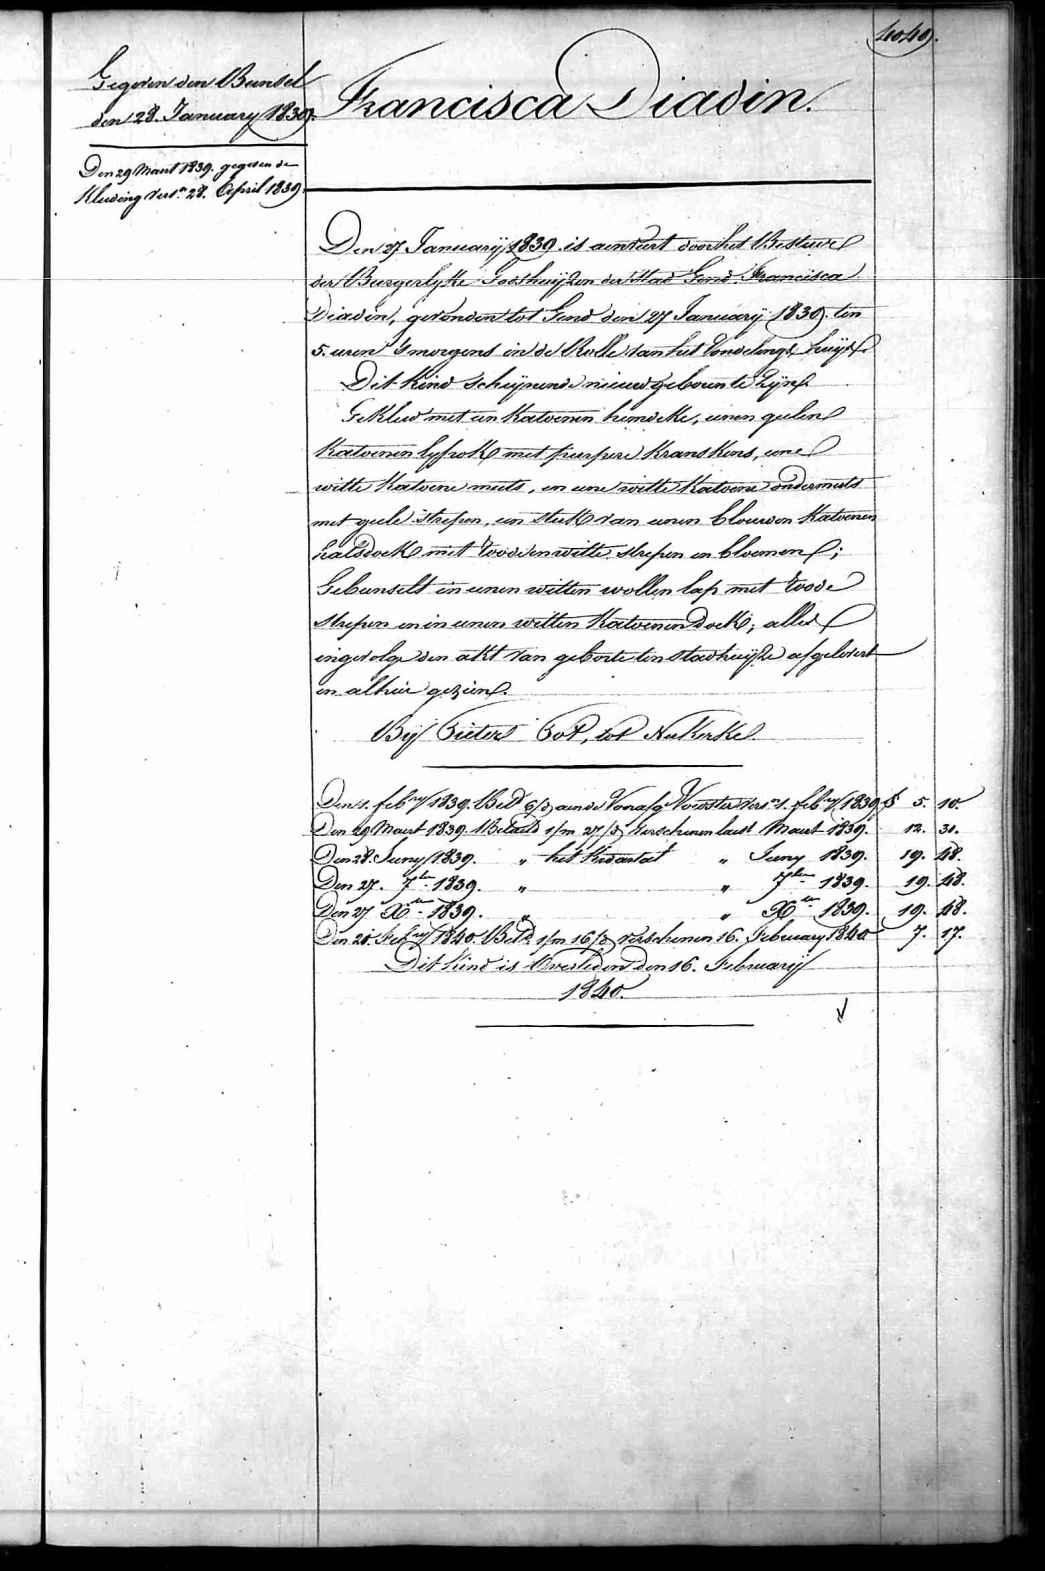 4049.
Gegeven den Bunsel
den 28. January 1839.
Den 29 Maart 1839. gegeven de
Kleeding vers.n 28. April 1839
Francisca Diadin.
Den 27 Januarij 1839. is aenveert door het Bestuere
der Burgerlyke Godshuijzen der Stad Gend. Francisca
Diadin, gevonden tot Gend den 27 Januarij 1839. ten
5. uren 's morgens in de Rolle van het Vondelings huijs.
Dit Kind schijnende nieuw geboren te zijn.
Gekleed met een Katoenen hemdeke, eenen geelen
Katoenen lyfrok met purpere Kranskens, eene
witte Katoene muts, en eene witte Katoene ondermuts
met geele strepen, een stuk van eenen blauwen Katoenen
halsdoek met roode en witte strepen en bloemen;
Gebunselt in eenen witten wollen lap met roode
strepen en in eenen witten Katoenen doek; alles
ingevolge den akt van geboorte ten stadhuijze afgelevert
en alhier gezien.
Bij Pieter Pot, tot Nukerke.
Den 1. feb.ry 1839. Bet.d 6/d aen de Voorsters vers.n 1. feb.ry 1839 § 5. 10.
Den 29 Maart 1839. Betaeld 1/m 27/d verschenen laest Maart 1839. 12. 31.
Den 28. Juny 1839. " het Kwartael " Juny 1839. 19. 48.
Den 27. 7ber 1839. " " 7ber 1839. 19. 48.
Den 27 Xber 1839. " " Xber 1839. 19. 48.
Den 28. Feb.ry 1840. Bet.d 1/m 16/d verschenen 16. February 1840 7. 17.
Dit kind is Overleden den 16. Februarij
1840.